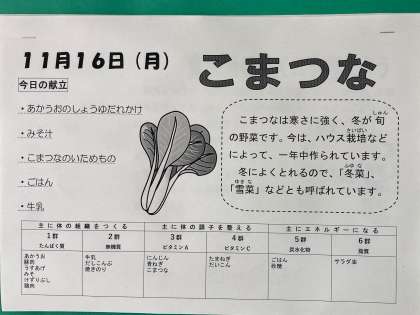 11月16日（月）
こまつな
今日の献立
・あかうおのしょうゆだれかけ
・みそ汁
・こまつなのいためもの
・ごはん
・牛乳
こまつなは寒さに強く、冬が旬
の野菜です。今は、ハウス栽培など
によって、一年中作られています。
冬によくとれるので、「冬菜」、
「雪菜」などとも呼ばれています。
主に体の組織をつくる
主に体の調子を整える
主にエネルギーになる
1群
2群
3群
4群
5群
6群
たんぱく質
無機質
ビタミンA
ビタミンC
炭水化物
脂質
あかうお
豚肉
うすあげ
みそ
けずりぶし
鶏肉
牛乳
だしこんぶ
焼きのり
にんじん
青ねぎ
こまつな
たまねぎ
だいこん
ごはん
砂糖
サラダ油